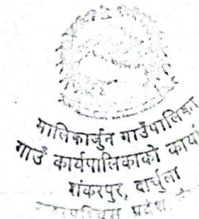 मालिकार्जुन गाउँपालिका
गाउँ कार्यपालिकाको कार्या
शंकरपुर, दार्चुला
सुदूरपश्चिम प्रदेश